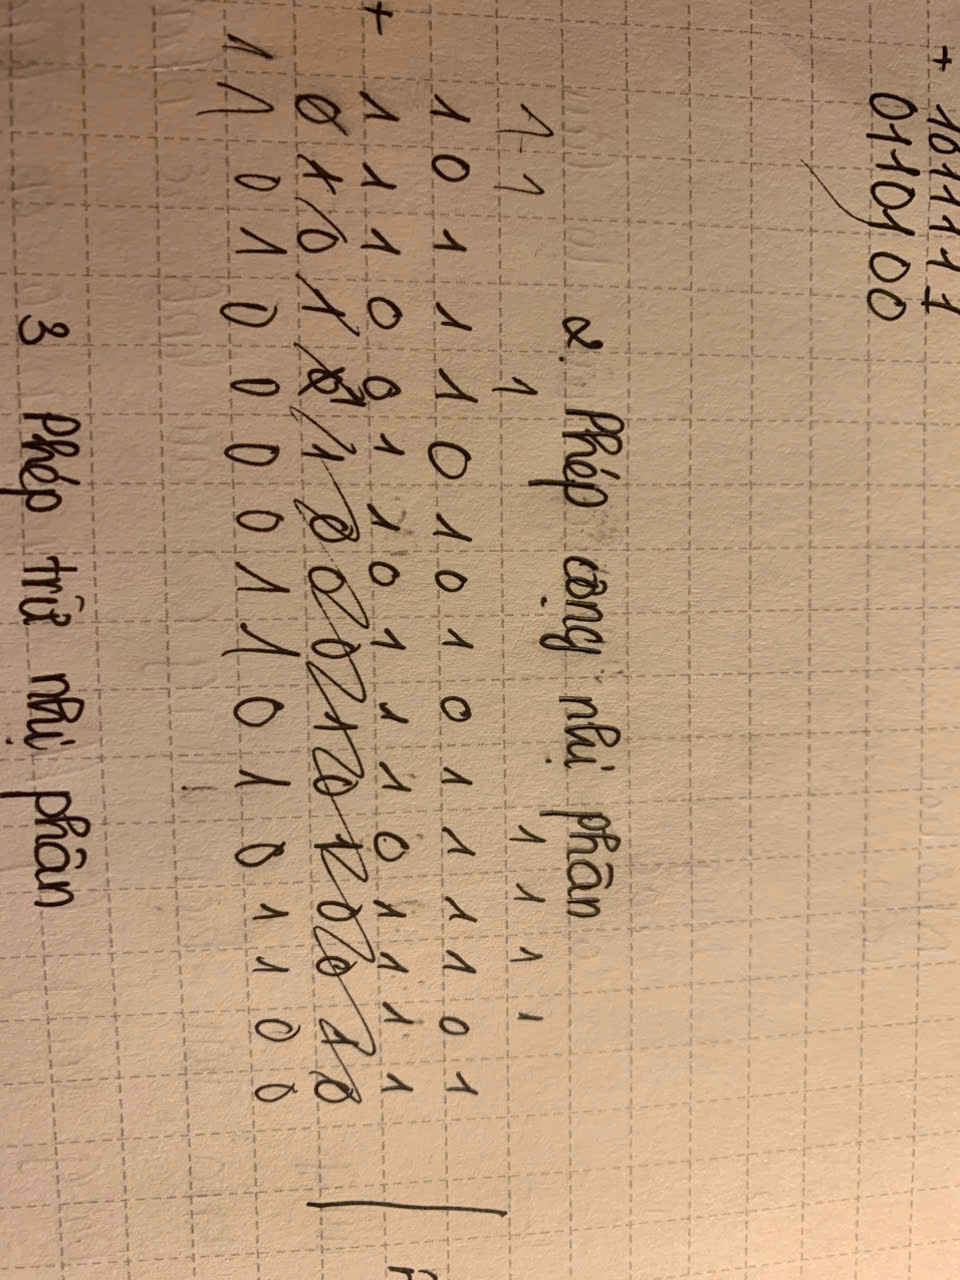 + 1011111
0110100
2. Phép cộng nhị phân
1 1 1 1 1 1 1
1 0 1 1 1 0 1 0 1 0 1 1 1 1 0 1
+ 1 1 1 0 0 1 1 0 1 1 1 0 1 1 1 1
1 1 0 1 0 0 0 0 1 1 0 1 0 1 1 0 0
3 Phép trừ nhị phân